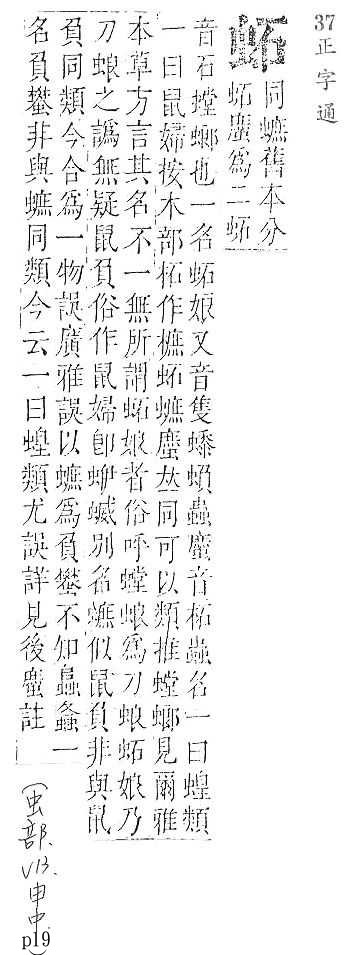 37正字通
蚮
同䗪舊本分
蚮䗪為二蚮
音石螳螂也一名蚮娘又音隻䗪蟲名一曰蝗類
一曰鼠婦按木部柘作樜蚮䗪𠀤同可以類推螳螂見爾雅
本草方言其名不一無所謂蚮娘者俗呼螳蜋為刀蜋蚮娘乃
刀蜋之譌無疑鼠負俗作鼠婦卽蛜蝛別名䗪似鼠負非與鼠
負同類今合為一物誤廣雅誤以䗪為負蠜不知蟲螽一
名負蠜非與䗪同類今云一曰蝗類尤誤詳見後䗪註
(虫部.
V13.
申中
p19